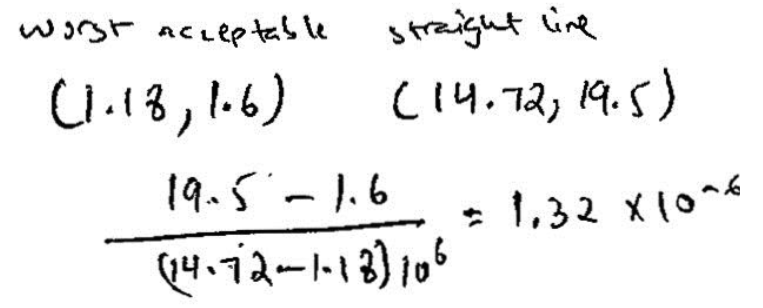 worst acceptable straight line
(1.18, 1.6) (14.72, 19.5)
19.5 - 1.6
(14.72-1.18)10⁶ = 1.32 x10⁻⁶